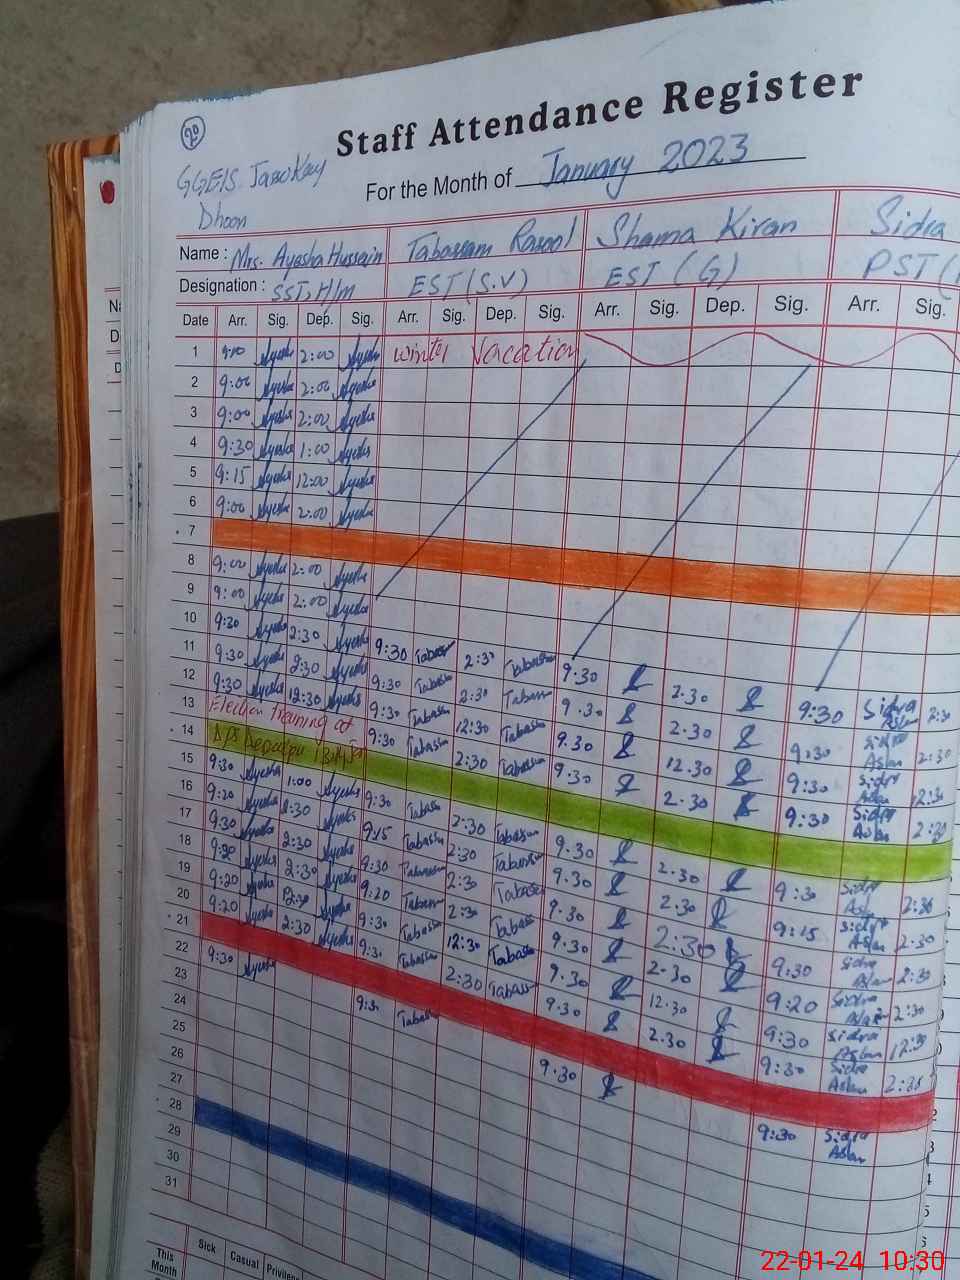 20
Staff Attendance Register
GGES Jasokay
Dhoon
For the Month of January 2023
Name : Mrs. Ayesha Hussain Tabassam Rasool Shama Kiran Sidra
Designation : SST, H/m EST (S.V) EST (G) PST (
Date Arr. Sig. Dep. Sig. Arr. Sig. Dep. Sig. Arr. Sig. Dep. Sig. Arr. Sig.
1 Ayesha 2:00 Ayesha winter vacation
2 9:00 Ayesha 2:00 Ayesha
3 9:00 Ayesha 2:00 Ayesha
4 9:30 Ayesha 1:00 Ayesha
5 9:15 Ayesha 12:00 Ayesha
6 9:00 Ayesha 2:00 Ayesha
7
8 9:00 Ayesha 2:00 Ayesha
9 9:00 Ayesha 2:00 Ayesha
10 9:30 Ayesha 2:30 Ayesha 9:30 Tabassum 2:30 Tabassum 9.30 2.30 9:30 Sidra Aslam 2:30
11 9:30 Ayesha 2:30 Ayesha 9:30 Tabassum 2:30 Tabassum 9.30 2.30 9:30 Sidra Aslam 2:30
12 9:30 Ayesha 12:30 Ayesha 9:30 Tabassum 12:30 Tabassum 9.30 12.30 9:30 Sidra Aslam 12:30
13 Election training at 9:30 Tabassum 2:30 Tabassum 9.30 2.30 9:30 Sidra Aslam 2:30
14 DPS
15 9:30 Ayesha 1:00 Ayesha 9:30 Tabassum 2:30 Tabassum 9.30 2.30 9:30 Sidra Aslam 2:30
16 Ayesha Ayesha 9:15 Tabassum 2:30 Tabassum 9.30 2.30 9:15 Sidra Aslam 2:30
17 9:30 Ayesha 2:30 Ayesha 9:30 Tabassum 2:30 Tabassum 9.30 2:30 9:30 Sidra Aslam 2:30
18 Ayesha 2:30 Ayesha 9:20 Tabassum 2:30 Tabassum 9.30 2.30 9:20 Sidra Aslam 2:30
19 9:20 Ayesha 12:30 Ayesha 9:30 Tabassum 12:30 Tabassum 9.30 12.30 9:30 Sidra Aslam 12:30
20 9:20 Ayesha 2:30 Ayesha 9:30 Tabassum 2:30 Tabassum 9.30 2.30 9:30 Sidra Aslam 2:30
21
22 9:30 Ayesha 9:30 Tabassum 9.30 9:30 Sidra Aslam
23
24
25
26
27
28
29
30
31
This Month Sick Casual
22-01-24 10:30